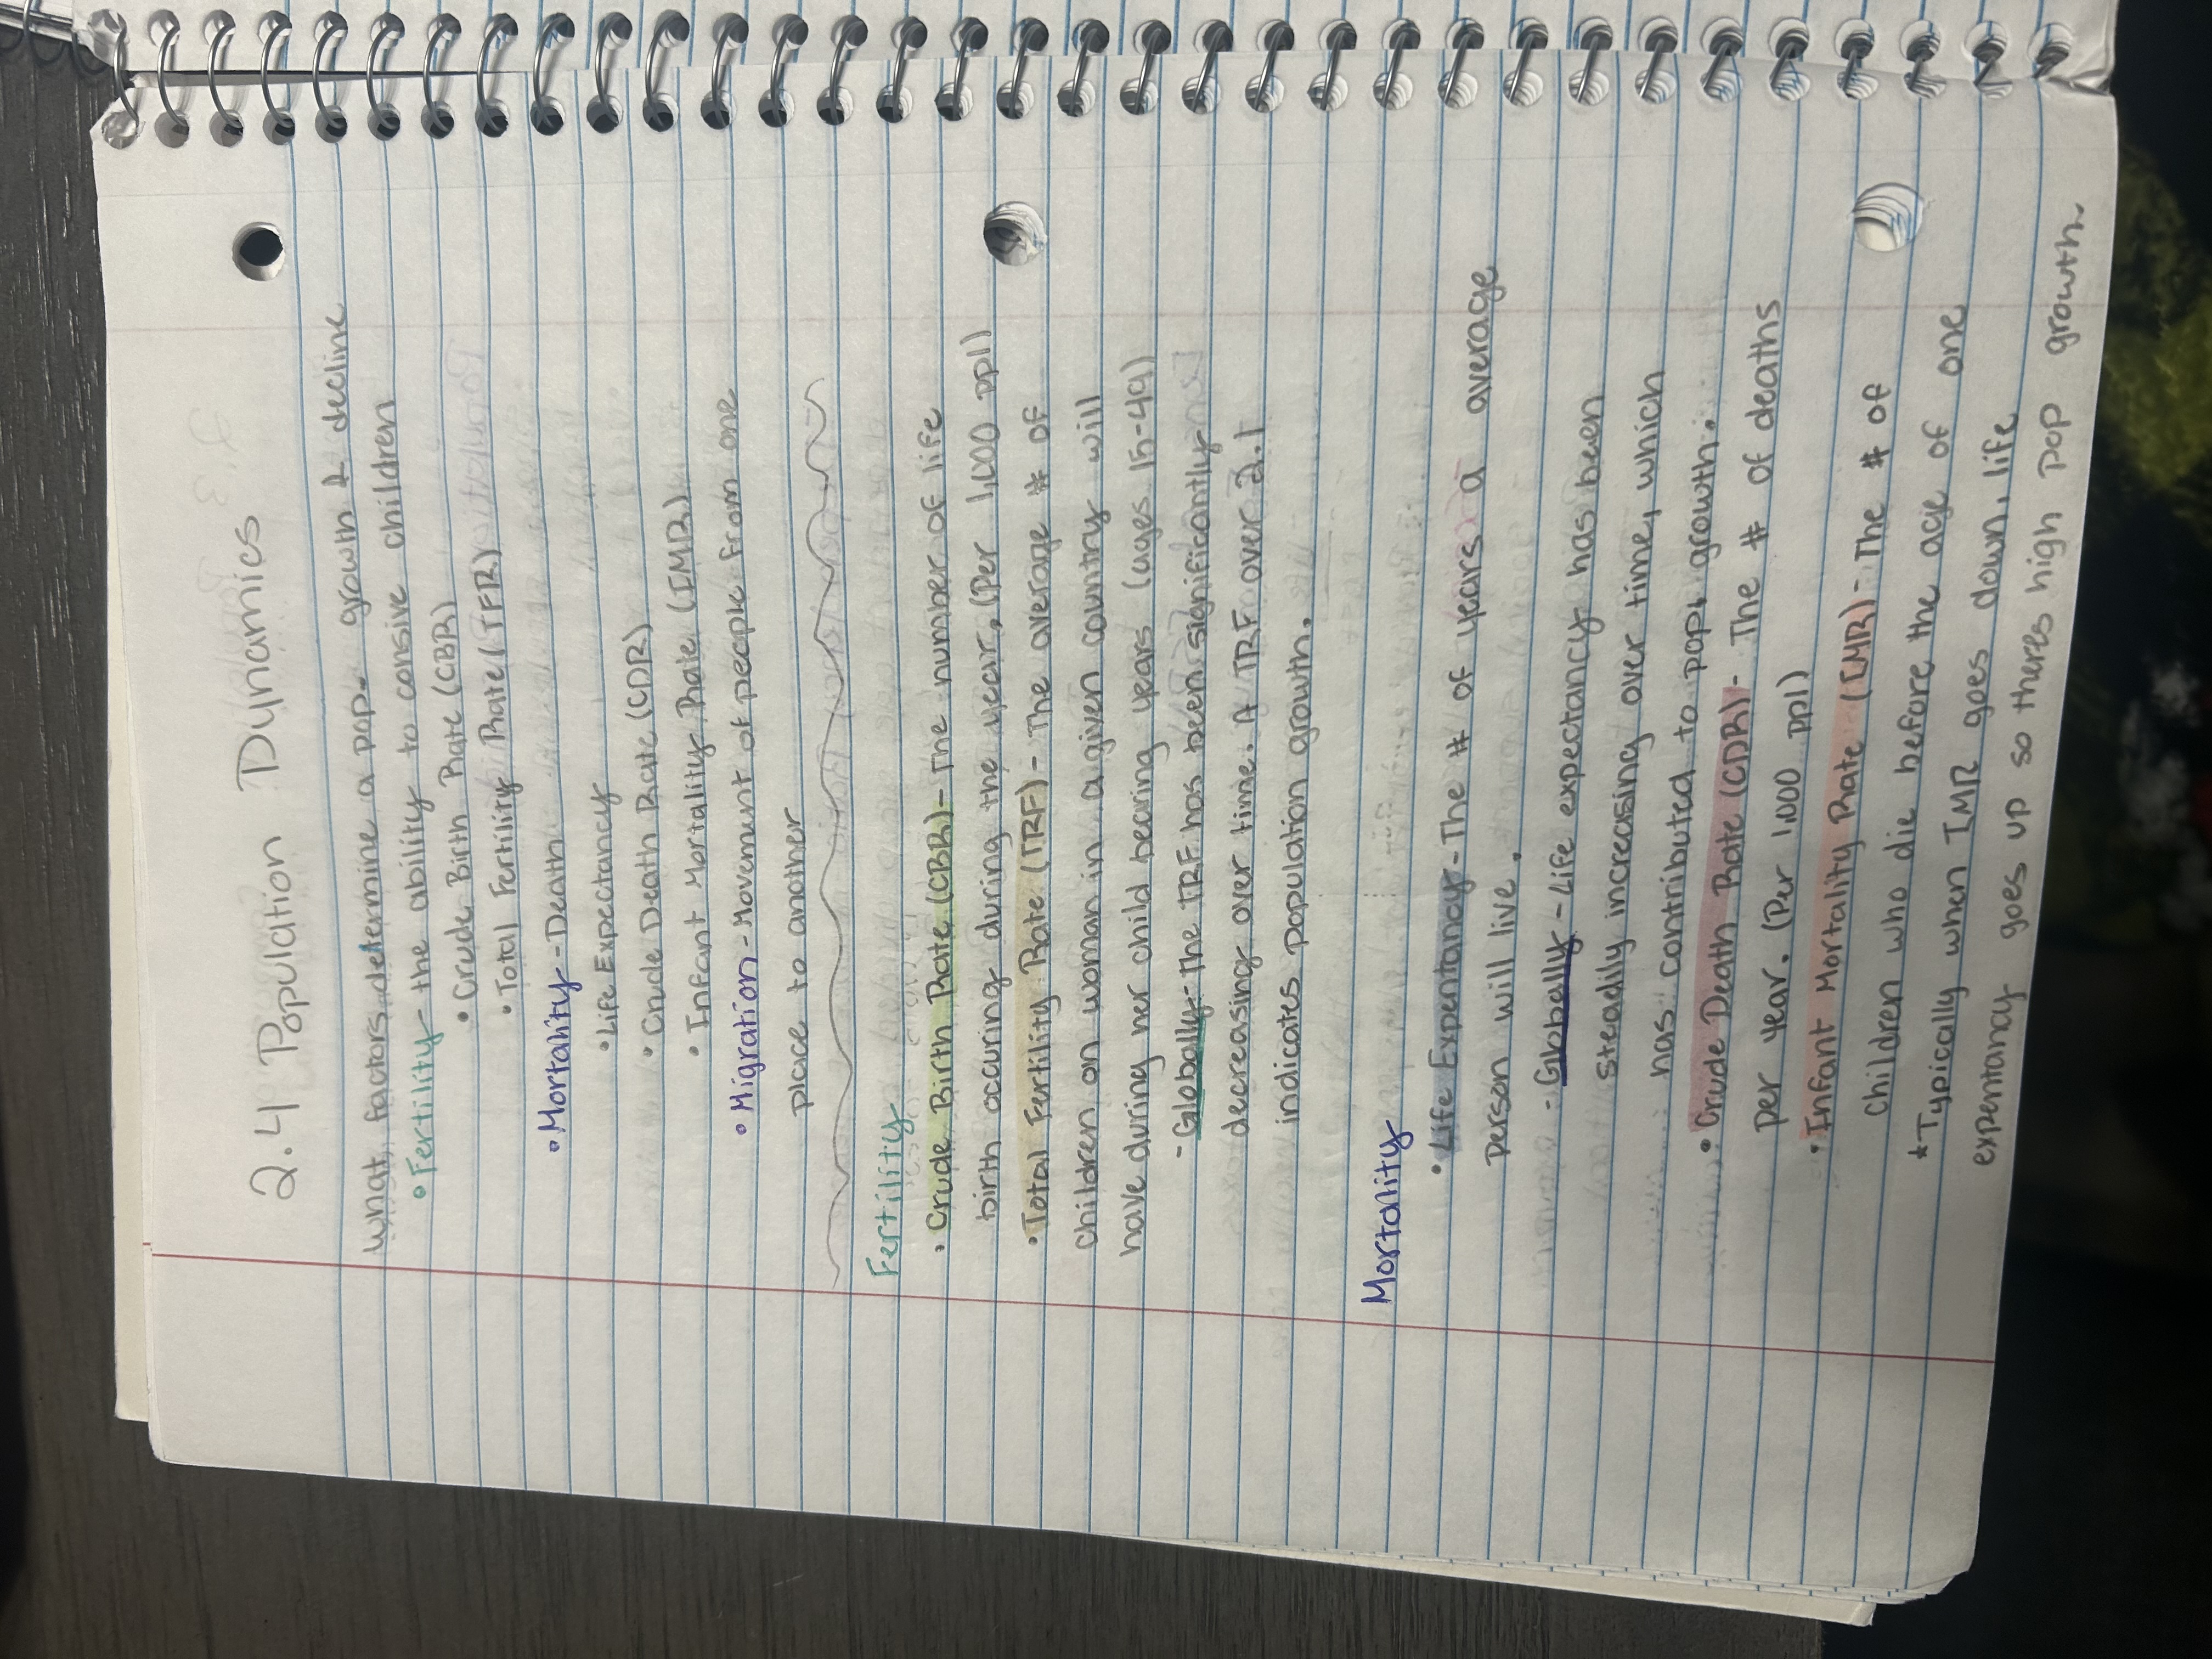 2.4 Population Dynamics
What factors determine a pop. growth & decline
• Fertility - the ability to consive children
• Crude Birth Rate (CBR)
• Total Fertility Rate (TFR)
• Mortality - Death
• Life Expectancy
• Crude Death Rate (CDR)
• Infant Mortality Rate (IMR)
• Migration - Movement of people from one
place to another
Fertility
• Crude Birth Rate (CBR) - The number of life
birth occuring during the year. (Per 1,000 ppl)
• Total Fertility Rate (TRF) - The average # of
Children on woman in a given country will
have during her child bearing years (ages 15-49)
- Globally - the TRF has been significantly
decreasing over time. A TRF over 2.1
indicates population growth.
Mortality
• Life Expentancy - The # of years a average
person will live.
- Globally - Life expectancy has been
steadily increasing over time, which
has contributed to pop. growth.
• Crude Death Rate (CDR) - The # of deaths
per year. (Per 1,000 ppl)
• Infant Mortality Rate (IMR) - The # of
children who die before the age of one
*Typically when IMR goes down, life
expentany goes up so theres high pop growth.